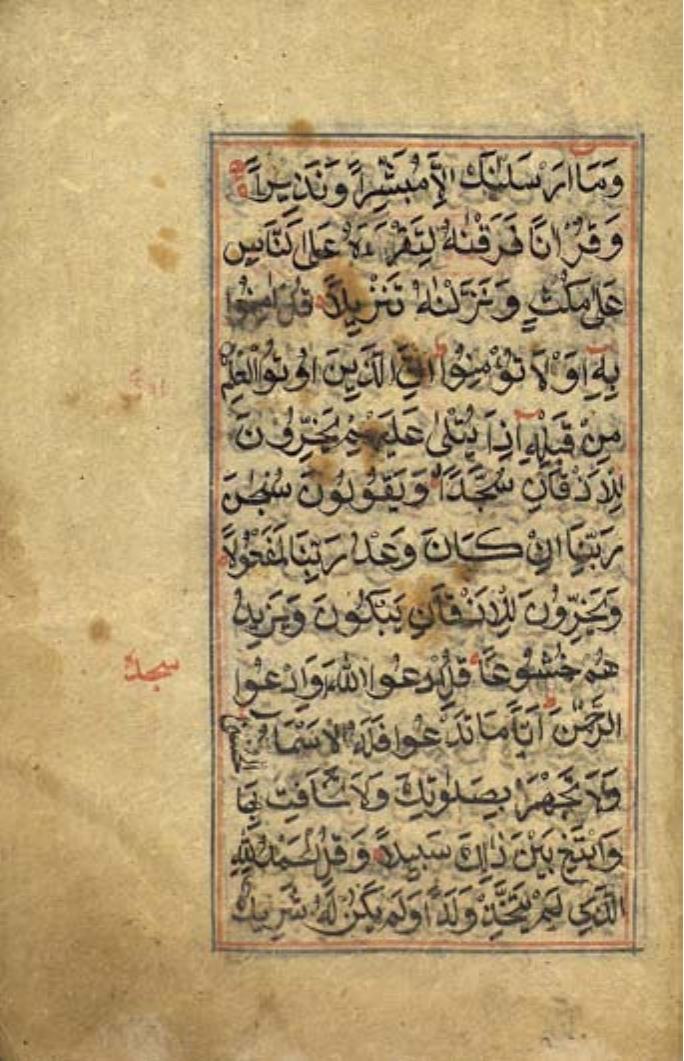 وَمَا اَرْسَلْنٰكَ اِلَّا مُبَشِّرًا وَّنَذِيْرًا
وَقُرْاٰنًا فَرَقْنٰهُ لِتَقْرَءَهٗ عَلَى النَّاسِ
عَلٰى مُكْثٍ وَّنَزَّلْنٰهُ تَنْزِيْلًا قُلْ اٰمِنُوْا
بِهٖ اَوْ لَا تُؤْمِنُوْا اِنَّ الَّذِيْنَ اُوْتُوا الْعِلْمَ
مِنْ قَبْلِهٖ اِذَا يُتْلٰى عَلَيْهِمْ يَخِرُّوْنَ
لِلْاَذْقَانِ سُجَّدًا وَّيَقُوْلُوْنَ سُبْحٰنَ
رَبِّنَا اِنْ كَانَ وَعْدُ رَبِّنَا لَمَفْعُوْلًا
وَيَخِرُّوْنَ لِلْاَذْقَانِ يَبْكُوْنَ وَيَزِيْدُ
هُمْ خُشُوْعًا قُلِ ادْعُوا اللّٰهَ اَوِ ادْعُوا
سجده
الرَّحْمٰنَ اَيًّا مَّا تَدْعُوْا فَلَهُ الْاَسْمَآءُ الْحُسْنٰى
وَلَا تَجْهَرْ بِصَلٰوتِكَ وَلَا تُخَافِتْ بِهَا
وَابْتَغِ بَيْنَ ذٰلِكَ سَبِيْلًا وَقُلِ الْحَمْدُ لِلّٰهِ
الَّذِيْ لَمْ يَتَّخِذْ وَلَدًا وَّلَمْ يَكُنْ لَّهٗ شَرِيْكٌ